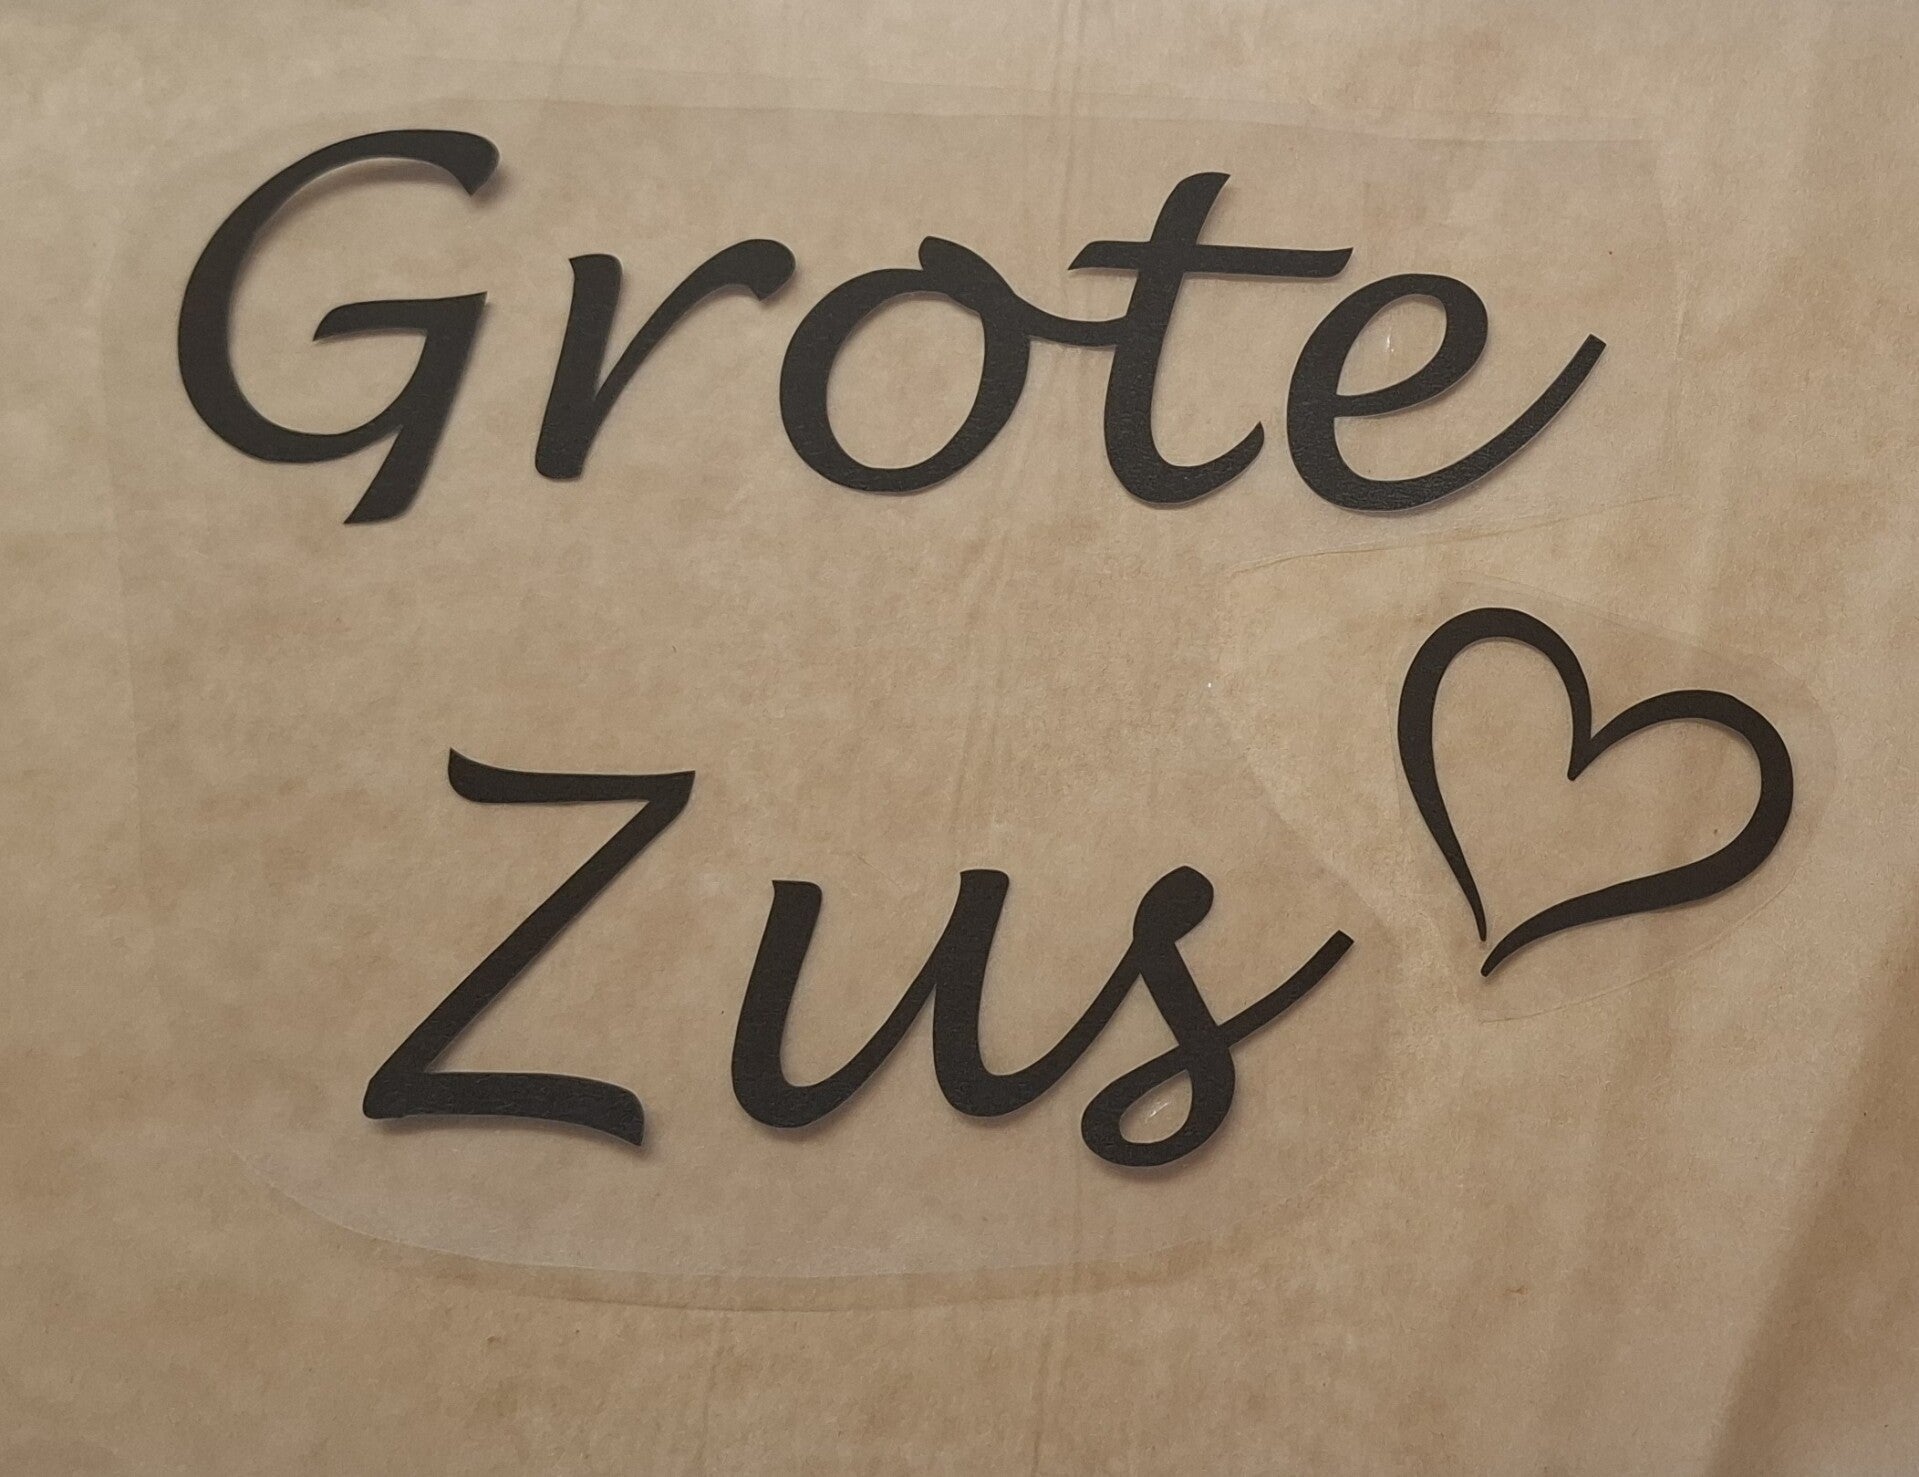 Grote
Zus